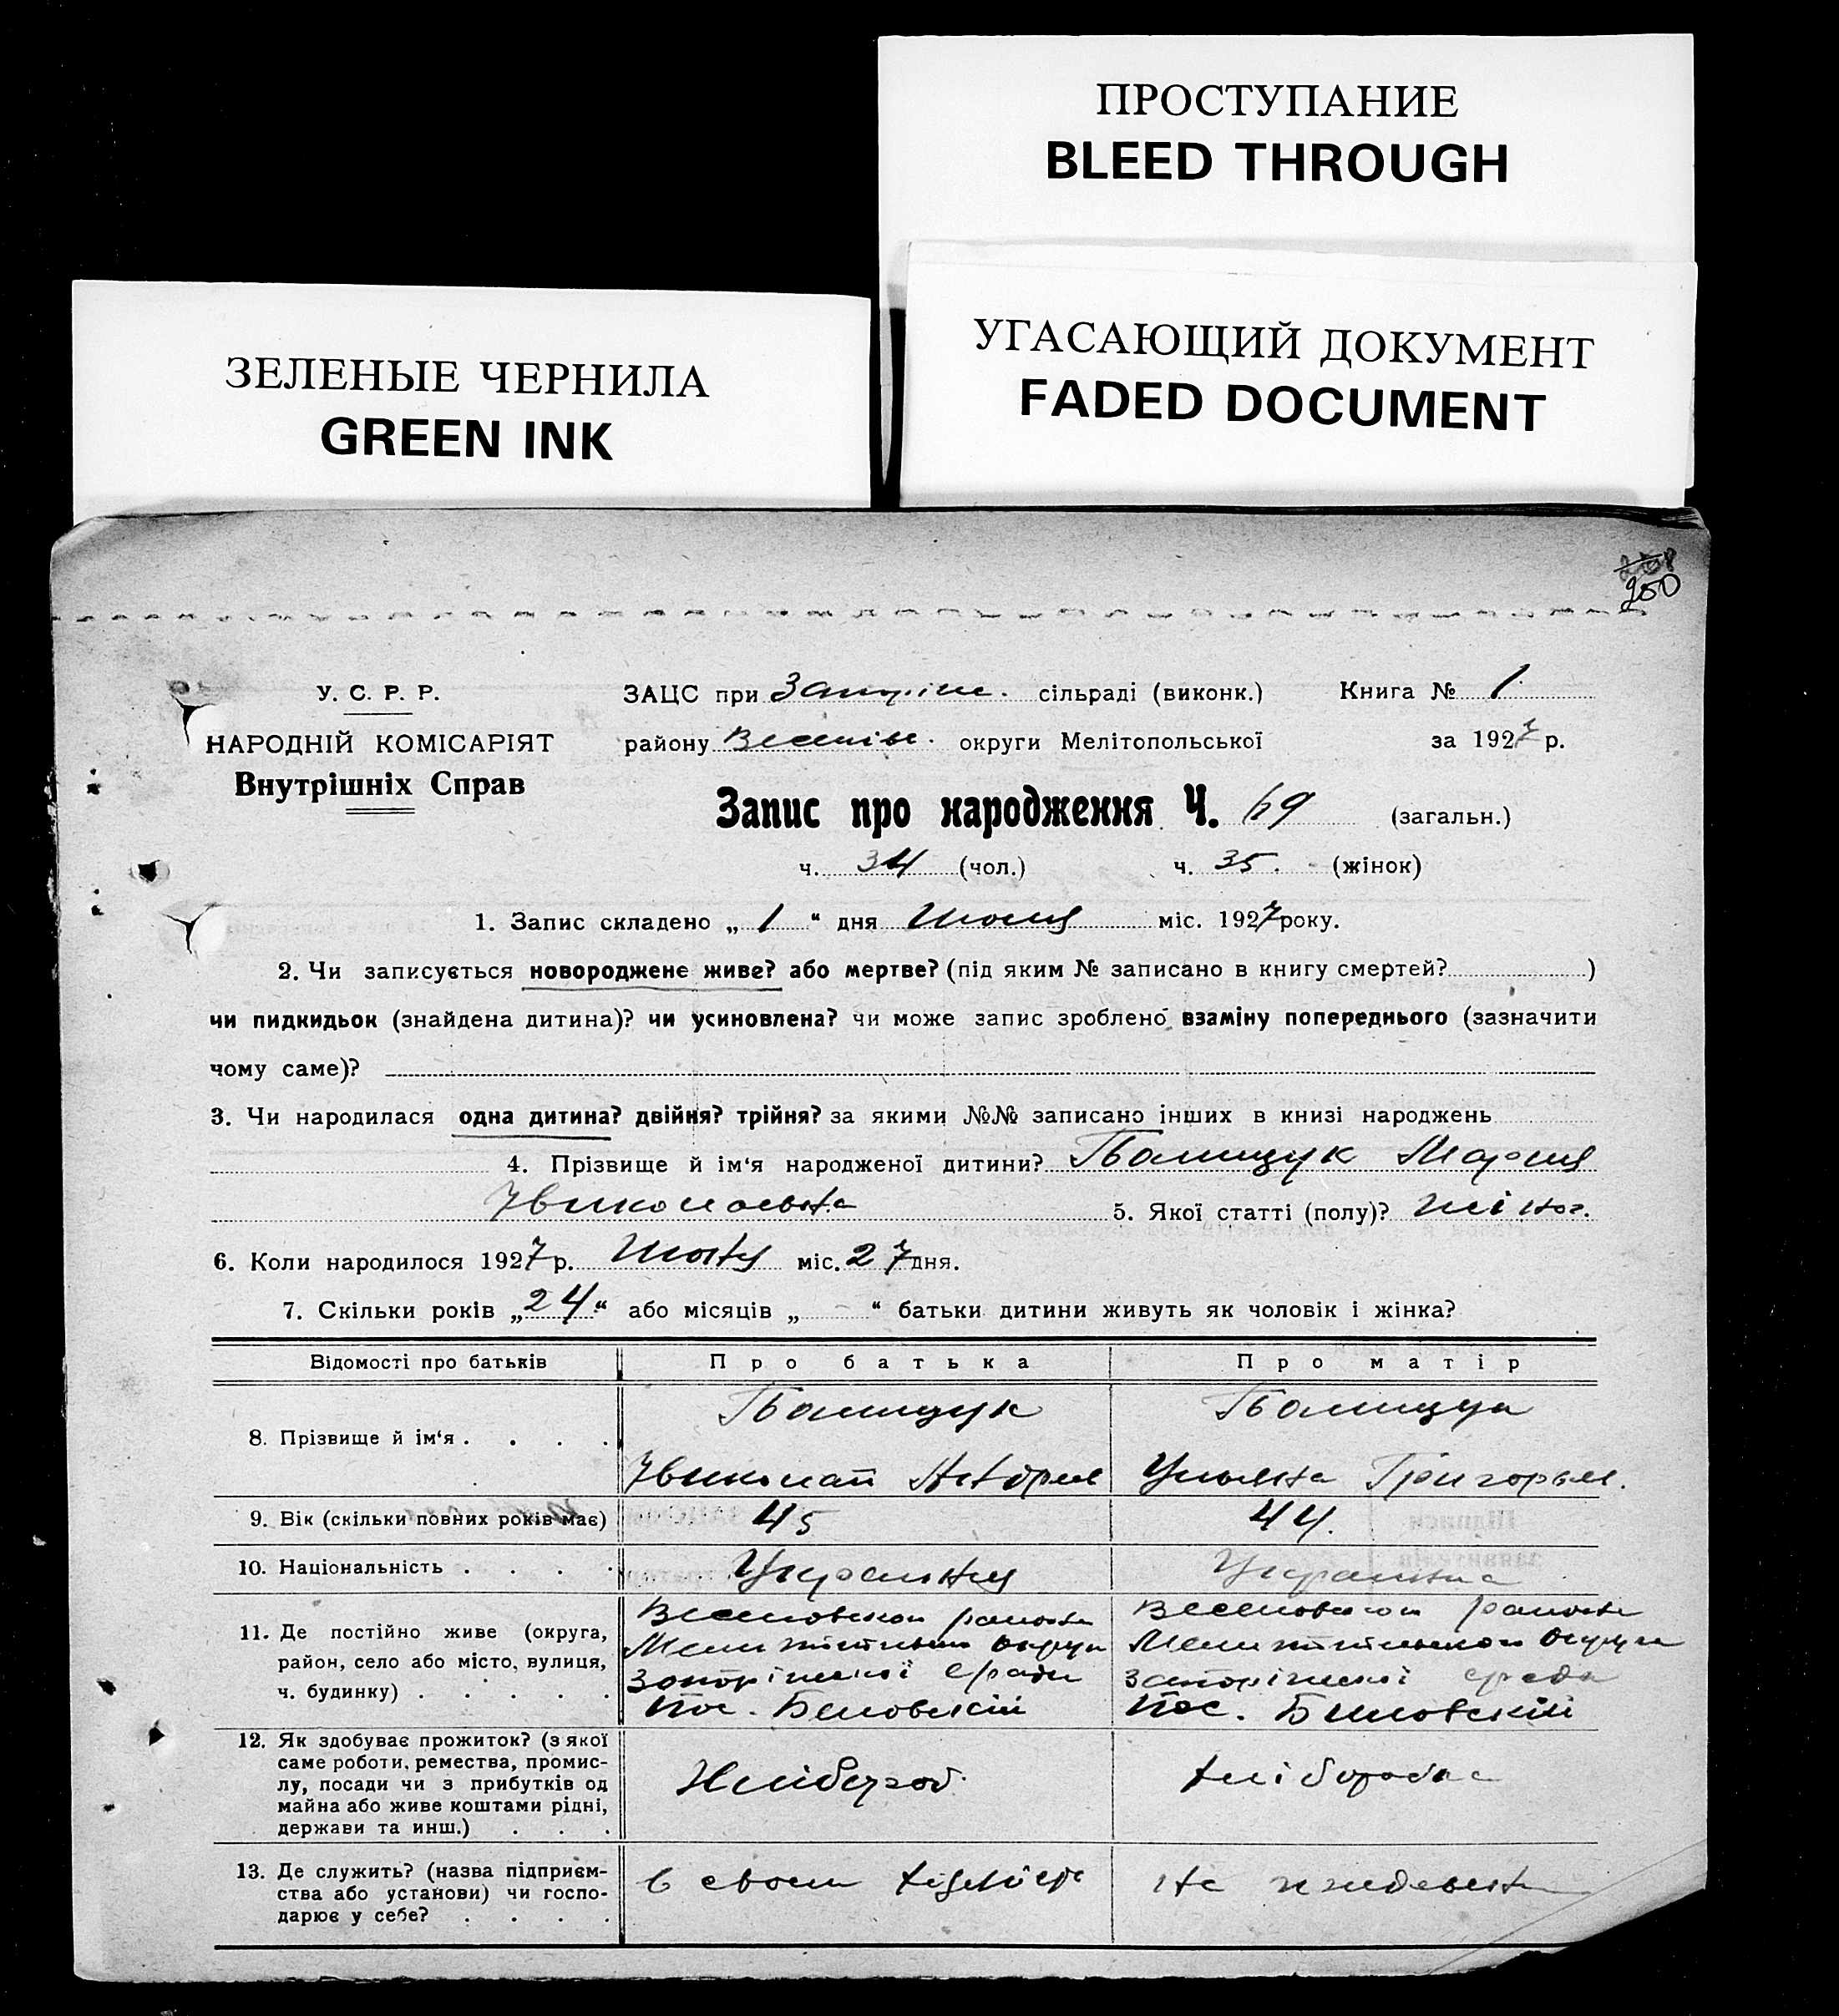 ПРОСТУПАНИЕ
BLEED THROUGH
ЗЕЛЕНЫЕ ЧЕРНИЛА
GREEN INK
УГАСАЮЩИЙ ДОКУМЕНТ
FADED DOCUMENT
250
У. С. Р. Р.
НАРОДНІЙ КОМІСАРІЯТ
Внутрішніх Справ
ЗАЦС при сільраді (виконк.) Книга № 1
району округи Мелітопольської за 1927 р.
Запис про народження Ч. 69 (загальн.)
ч. 34 (чол.) ч. 35. (жінок)
1. Запис складено „ 1 “ дня міс. 1927 року.
2. Чи записується новороджене живе? або мертве? (під яким № записано в книгу смертей? )
чи пидкидьок (знайдена дитина)? чи усиновлена? чи може запис зроблено взаміну попереднього (зазначити
чому саме)?
3. Чи народилася одна дитина? двійня? трійня? за якими №№ записано інших в книзі народжень
4. Прізвище й ім‘я народженої дитини? Мария
5. Якої статті (полу)? жіноч.
6. Коли народилося 1927 р. міс. 27 дня.
7. Скільки років „ 24 “ або місяців „ - “ батьки дитини живуть як чоловік і жінка?
Відомості про батьків Про батька Про матір
8. Прізвище й ім‘я . . . .
Николай Андреев Ульяна Григорьев.
9. Вік (скільки повних років має) 45 44.
10. Національність . . . .
11. Де постійно живе (округа,
район, село або місто, вулиця,
ч. будинку) . . . . .
Веселовского района Веселовского района
Пос. Пос.
12. Як здобуває прожиток? (з якої
саме роботи, ремества, промис-
лу, посади чи з прибутків од
майна або живе коштами рідні,
держави та инш.) . . .
Хлібороб. хлібороба
13. Де служить? (назва підприєм-
ства або установи) чи госпо-
дарює у себе? . . . .
в своем На иждевен